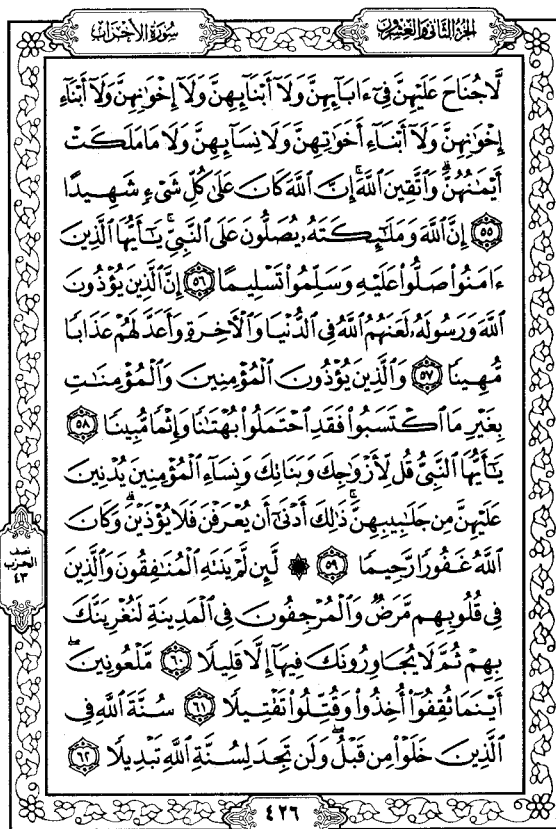 سُورَةُ الأَحْزَابِ
الجُزءُ الثَّانِي وَالعِشْرُونَ
لَّا جُنَاحَ عَلَيْهِنَّ فِىٓ ءَابَآئِهِنَّ وَلَآ أَبْنَآئِهِنَّ وَلَآ إِخْوَٰنِهِنَّ وَلَآ أَبْنَآءِ
إِخْوَٰنِهِنَّ وَلَآ أَبْنَآءِ أَخَوَٰتِهِنَّ وَلَا نِسَآئِهِنَّ وَلَا مَا مَلَكَتْ
أَيْمَٰنُهُنَّ ۗ وَٱتَّقِينَ ٱللَّهَ ۚ إِنَّ ٱللَّهَ كَانَ عَلَىٰ كُلِّ شَىْءٍ شَهِيدًا
٥٥ إِنَّ ٱللَّهَ وَمَلَٰٓئِكَتَهُۥ يُصَلُّونَ عَلَى ٱلنَّبِىِّ ۚ يَٰٓأَيُّهَا ٱلَّذِينَ
ءَامَنُوا۟ صَلُّوا۟ عَلَيْهِ وَسَلِّمُوا۟ تَسْلِيمًا ٥٦ إِنَّ ٱلَّذِينَ يُؤْذُونَ
ٱللَّهَ وَرَسُولَهُۥ لَعَنَهُمُ ٱللَّهُ فِى ٱلدُّنْيَا وَٱلْءَاخِرَةِ وَأَعَدَّ لَهُمْ عَذَابًا
مُّهِينًا ٥٧ وَٱلَّذِينَ يُؤْذُونَ ٱلْمُؤْمِنِينَ وَٱلْمُؤْمِنَٰتِ
بِغَيْرِ مَا ٱكْتَسَبُوا۟ فَقَدِ ٱحْتَمَلُوا۟ بُهْتَٰنًا وَإِثْمًا مُّبِينًا ٥٨
يَٰٓأَيُّهَا ٱلنَّبِىُّ قُل لِّأَزْوَٰجِكَ وَبَنَاتِكَ وَنِسَآءِ ٱلْمُؤْمِنِينَ يُدْنِينَ
عَلَيْهِنَّ مِن جَلَٰبِيبِهِنَّ ۚ ذَٰلِكَ أَدْنَىٰٓ أَن يُعْرَفْنَ فَلَا يُؤْذَيْنَ ۗ وَكَانَ
ٱللَّهُ غَفُورًا رَّحِيمًا ٥٩ ۞ لَّئِن لَّمْ يَنتَهِ ٱلْمُنَٰفِقُونَ وَٱلَّذِينَ
فِى قُلُوبِهِم مَّرَضٌ وَٱلْمُرْجِفُونَ فِى ٱلْمَدِينَةِ لَنُغْرِيَنَّكَ
بِهِمْ ثُمَّ لَا يُجَاوِرُونَكَ فِيهَآ إِلَّا قَلِيلًا ٦٠ مَّلْعُونِينَ ۖ
أَيْنَمَا ثُقِفُوٓا۟ أُخِذُوا۟ وَقُتِّلُوا۟ تَقْتِيلًا ٦١ سُنَّةَ ٱللَّهِ فِى
ٱلَّذِينَ خَلَوْا۟ مِن قَبْلُ ۖ وَلَن تَجِدَ لِسُنَّةِ ٱللَّهِ تَبْدِيلًا ٦٢
نصف
الحزب
٤٣
٤٢٦